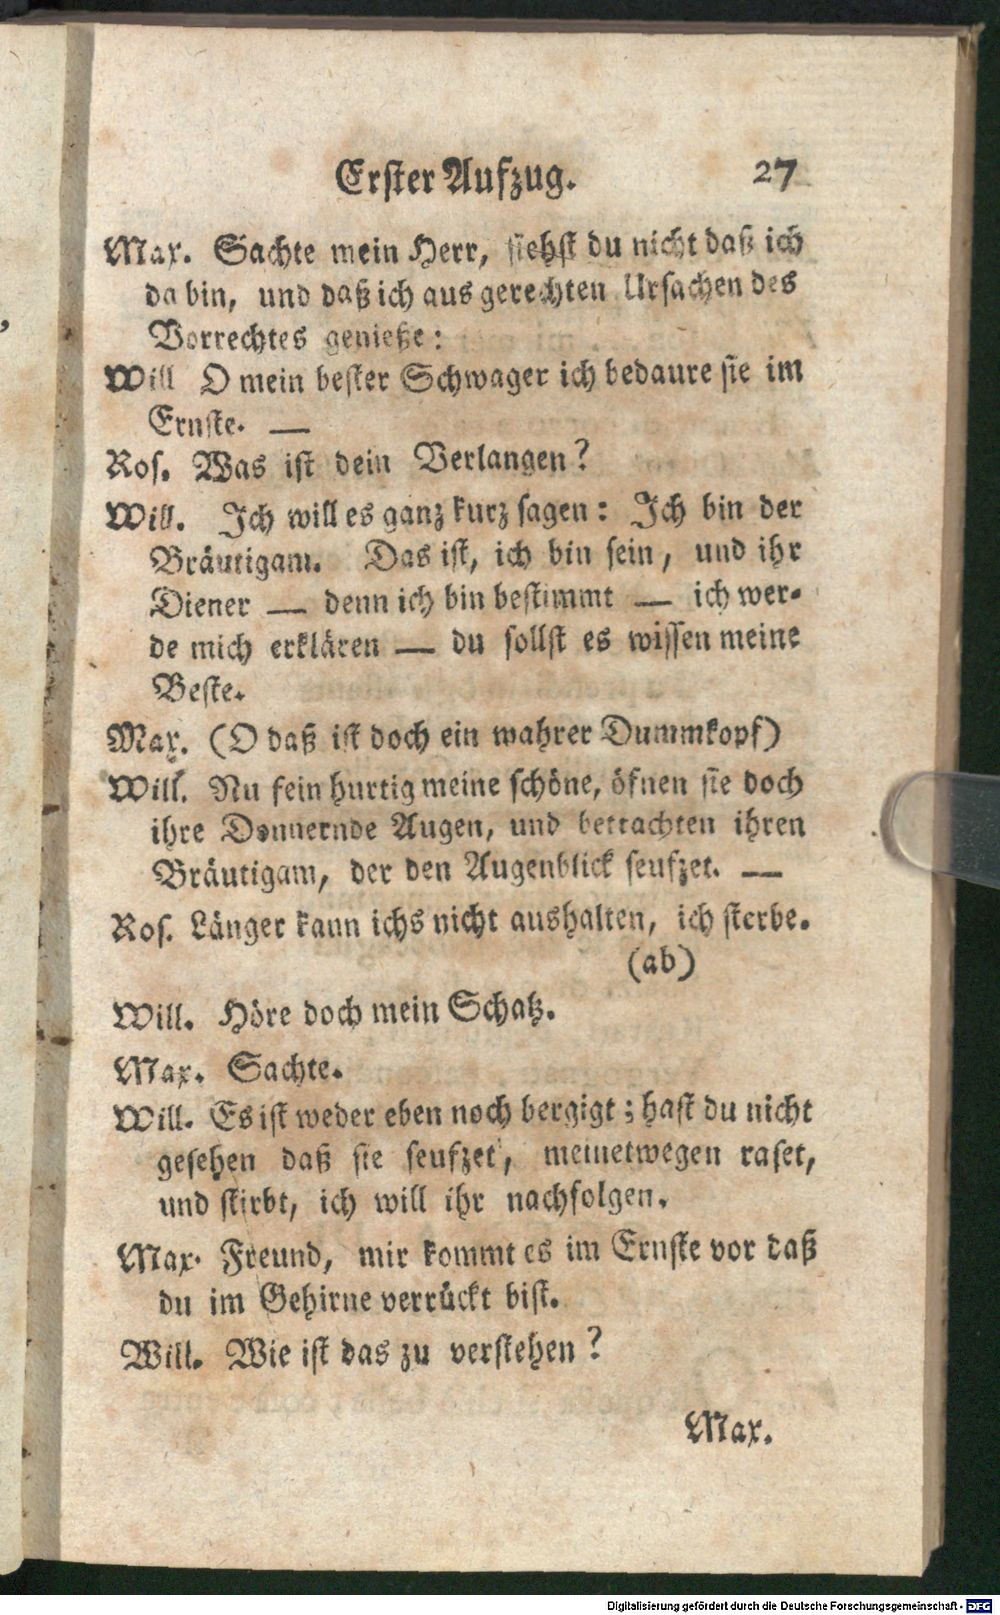 Erster Aufzug. 27
Max. Sachte mein Herr, siehst du nicht daß ich
da bin, und daß ich aus gerechten Ursachen des
Vorrechtes genieße:
Will O mein bester Schwager ich bedaure sie im
Ernste. —
Ros. Was ist dein Verlangen?
Will. Ich will es ganz kurz sagen: Ich bin der
Bräutigam. Das ist, ich bin sein, und ihr
Diener — denn ich bin bestimmt — ich wer-
de mich erklären — du sollst es wissen meine
Beste.
Max. (O daß ist doch ein wahrer Dummkopf)
Will. Nu fein hurtig meine schöne, öfnen sie doch
ihre Donnernde Augen, und betrachten ihren
Bräutigam, der den Augenblick seufzet. —
Ros. Länger kann ichs nicht aushalten, ich sterbe.
(ab)
Will. Höre doch mein Schatz.
Max. Sachte.
Will. Es ist weder eben noch bergigt; hast du nicht
gesehen daß sie seufzet, meinetwegen raset,
und stirbt, ich will ihr nachfolgen.
Max. Freund, mir kommt es im Ernste vor daß
du im Gehirne verrückt bist.
Will. Wie ist das zu verstehen?
Max.
Digitalisierung gefördert durch die Deutsche Forschungsgemeinschaft - DFG